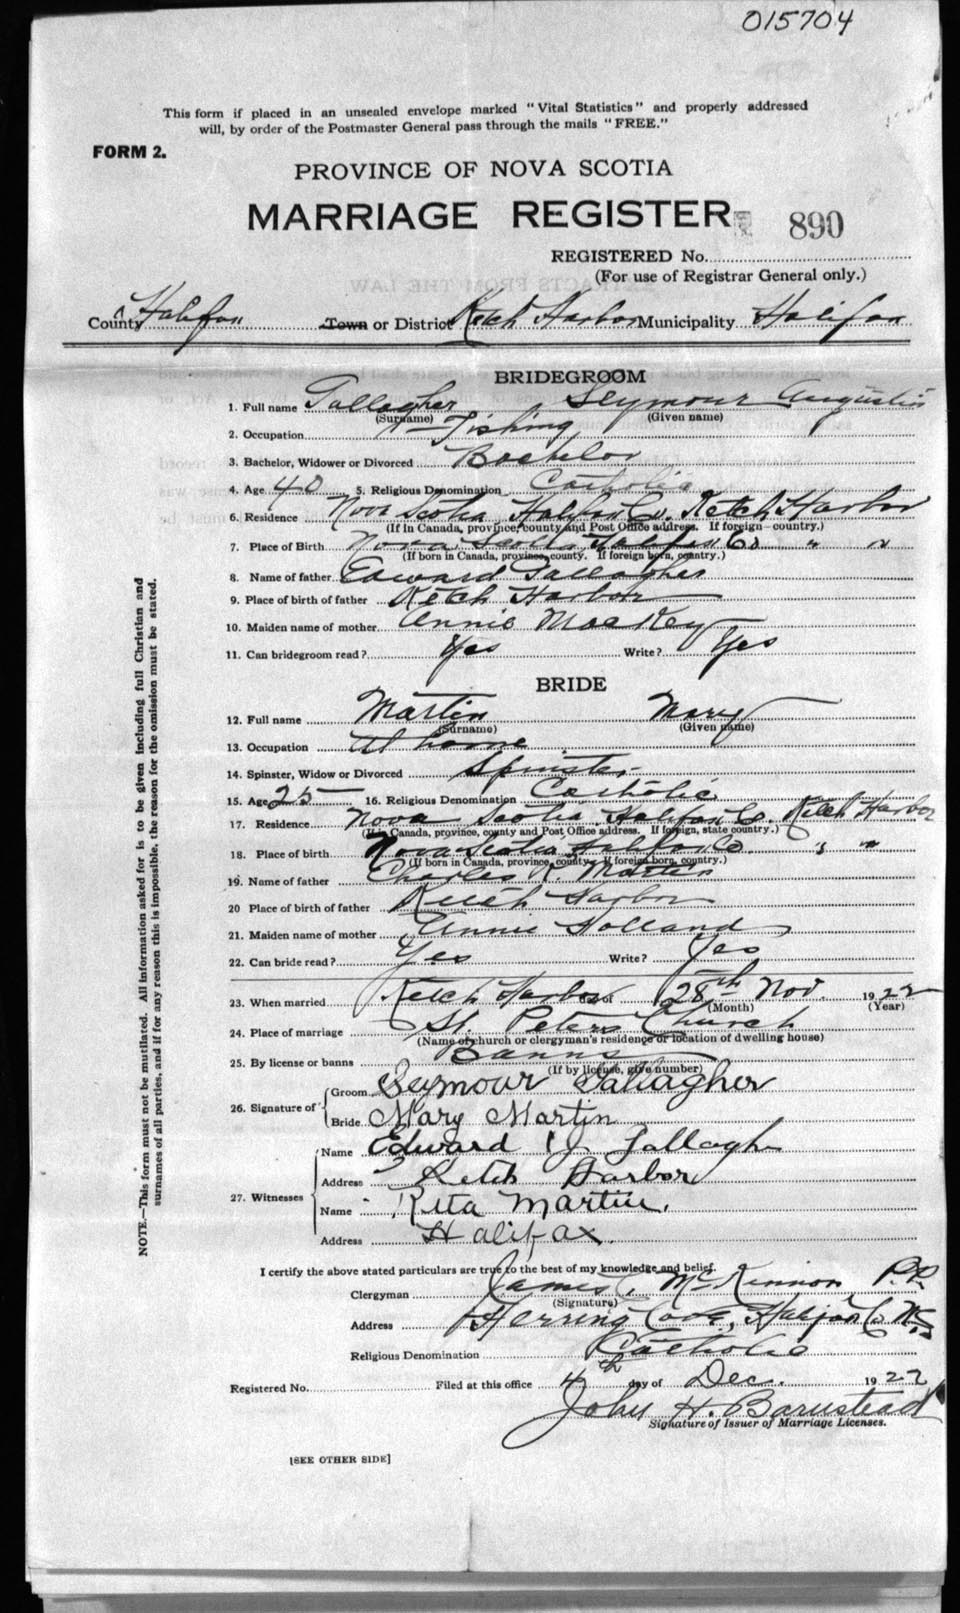 015704
This form if placed in an unsealed envelope marked "Vital Statistics" and properly addressed
will, by order of the Postmaster General pass through the mails "FREE."
FORM 2.
PROVINCE OF NOVA SCOTIA
MARRIAGE REGISTER
890
REGISTERED No.
(For use of Registrar General only.)
County Halifax Town or District Ketch Harbor Municipality Halifax
BRIDEGROOM
1. Full name Gallagher Seymour Augustus
(Surname) (Given name)
2. Occupation Fishing
3. Bachelor, Widower or Divorced Bachelor
4. Age 40 5. Religious Denomination Catholic
6. Residence Nova Scotia, Halifax Co. Ketch Harbor
(If in Canada, province, county and Post Office address. If foreign—country.)
7. Place of Birth Nova Scotia, Halifax Co " "
(If born in Canada, province, county. If foreign born, country.)
8. Name of father Edward Gallagher
9. Place of birth of father Ketch Harbor
10. Maiden name of mother Annie MacKey
11. Can bridegroom read? Yes Write? Yes
BRIDE
12. Full name Martin Mary
(Surname) (Given name)
13. Occupation At home
14. Spinster, Widow or Divorced Spinster
15. Age 25 16. Religious Denomination Catholic
17. Residence Nova Scotia Halifax Co. Ketch Harbor
(If in Canada, province, county and Post Office address. If foreign, state country.)
18. Place of birth Nova Scotia Halifax Co " "
(If born in Canada, province, county—If foreign born, country.)
19. Name of father Charles R. Martin
20 Place of birth of father Ketch Harbor
21. Maiden name of mother Annie Holland
22. Can bride read? Yes Write? Yes
23. When married Ketch Harbor day of 28th Nov. 1922
(Month) (Year)
24. Place of marriage St. Peters Church
(Name of church or clergyman's residence or location of dwelling house)
25. By license or banns Banns
(If by license, give number)
26. Signature of Groom Seymour Gallagher
Bride Mary Martin
27. Witnesses Name Edward J. Gallagher
Address Ketch Harbor
Name Rita Martin.
Address Halifax.
I certify the above stated particulars are true to the best of my knowledge and belief.
Clergyman James C. McKinnon P.P.
(Signature)
Address Herring Cove, Halifax Co N.S.
Religious Denomination Catholic
Registered No. Filed at this office 4th day of Dec. 1922
John H. Barnstead
Signature of Issuer of Marriage Licenses.
[SEE OTHER SIDE]
NOTE.—This form must not be mutilated. All information asked for is to be given including full Christian and
surnames of all parties, and if for any reason this is impossible, the reason for the omission must be stated.